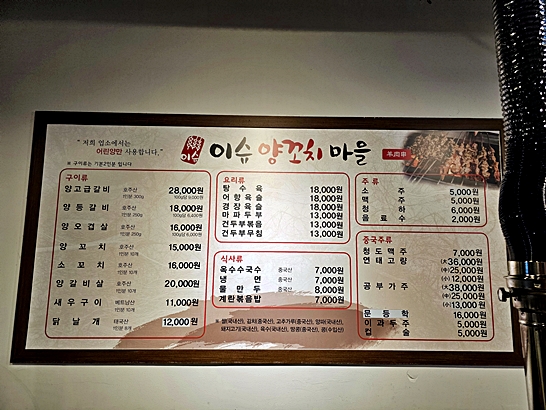 " 저희 업소에서는
어린양만 사용합니다."
※ 구이류는 기본2인분 입니다
이슈
이슈 양꼬치 마을
羊肉串
구이류
양고급갈비 호주산 1인분 300g 28,000원
양등갈비 호주산 1인분 250g 18,000원
양오겹살 호주산 1인분 250g 16,000원
양꼬치 호주산 1인분 10개 15,000원
소꼬치 호주산 1인분 10개 16,000원
양갈비살 호주산 1인분 10개 20,000원
새우구이 베트남산 1인분 10개 11,000원
닭날개 태국산 12,000원
요리류
탕수육 18,000원
어향육슬 18,000원
경장육슬 18,000원
마파두부 13,000원
건두부볶음 13,000원
건두부무침 13,000원
식사류
옥수수국수 중국산 7,000원
냉면 중국산 7,000원
물만두 중국산 8,000원
계란볶음밥 7,000원
※ 쌀(국내산), 김치(중국산), 고추가루(중국산), 양파(국내산),
돼지고기(국내산), 옥수(국내산), 땅콩(중국산), 콩(수입산)
주류
소주 5,000원
맥주 5,000원
청하 6,000원
음료수 2,000원
중국주류
청도맥주 7,000원
연태고량 (大)36,000원
(中)25,000원
(小)12,000원
공부가주 (大)38,000원
(中)25,000원
(小)13,000원
문등학 16,000원
이과두주 5,000원
컵술 5,000원